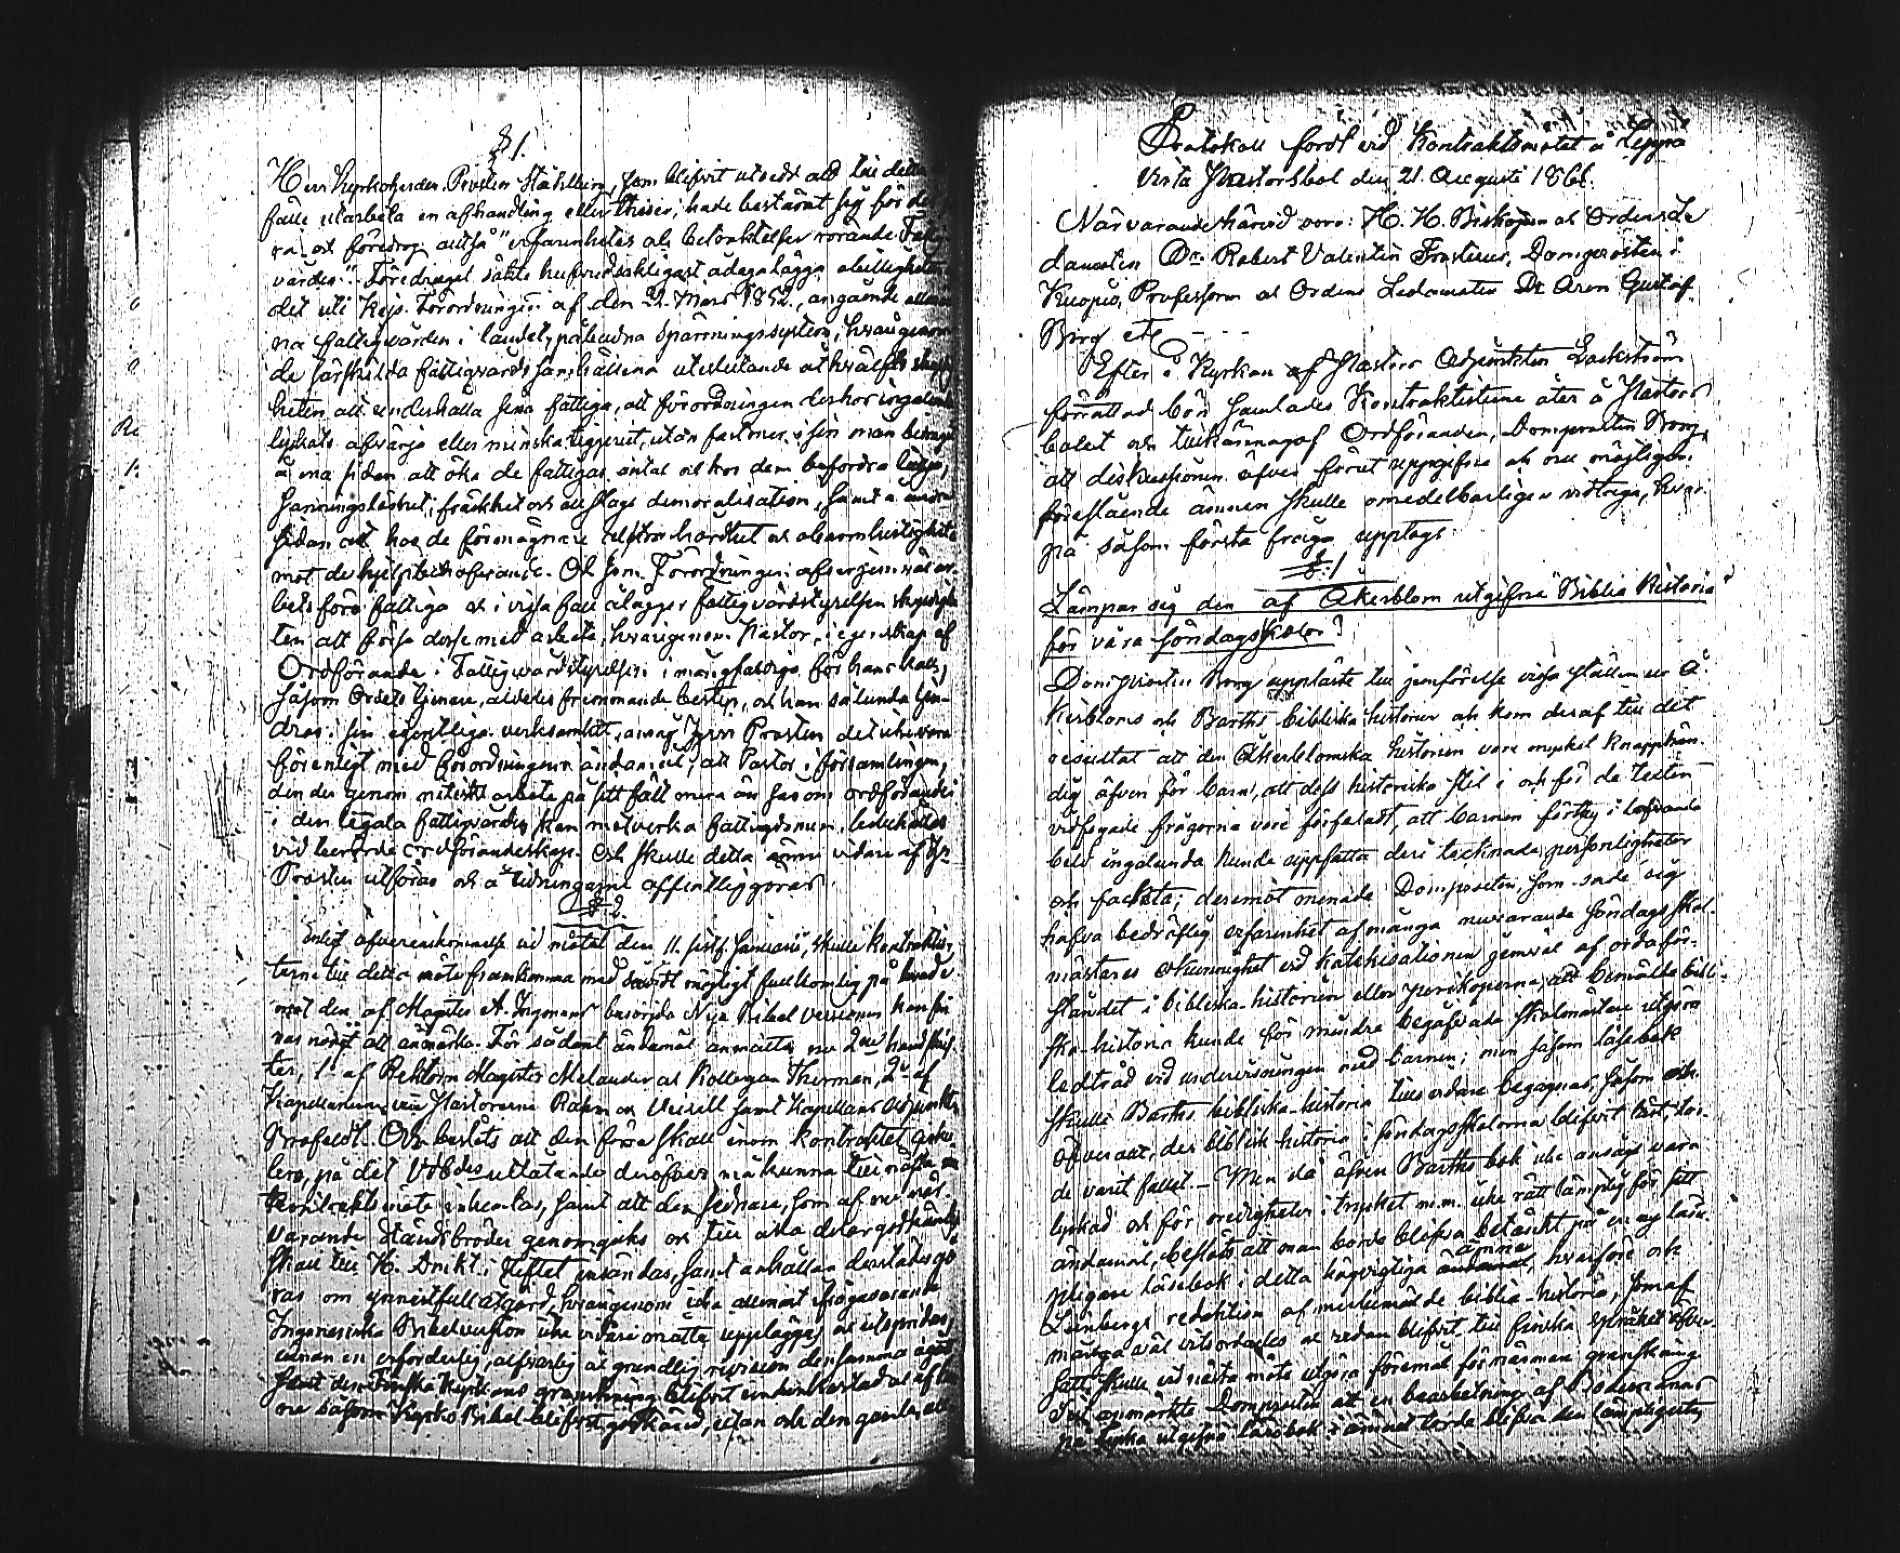 § 1.
Herr Kyrkoherden, Prosten Ståhlberg, som blifvit utsedd att till detta
fälle utarbeta en afhandling eller theser, hade beslutat sig för det
ra och föredrog alltså "erfarenheter och betraktelser rörande Fattig
vården". Föredraget sökte hufvudsakligast ådagalägga olägligheten
det uti Kejs. Förordningen af den 22 Mars 1852, angående allmän
na fattigvården i landet, påbudna spärrningssystem, hvarigenom
de särskilda fattigvårds samhällena uteslutande åthvälfts skyldig
heten att underhålla sina fattiga, att förordningen dess ingalunda
lyckats afvärja eller minska tiggeriet, utan fastmer i sin mån bidragit
å ena sidan att öka de fattigas antal och hos dem befordra lättja,
sanningslöshet, fräckhet och all slags demoralisation, samt å andra
sidan att hos de förmögnare alstra hårdhet och obarmhertighet
mot de hjelpbehöfvande. Och som Förordningen afser jemväl ar
betsföra fattiga och i vissa fall ålägger fattigvårdsstyrelsen skyldighe
ten att förse desse med arbete, hvarigenom Pastor, i egenskap af
Ordförande i Fattigvårdsstyrelsen i mångfaldiga för hans kall,
såsom Ordets tjenare, alldeles främmande bestyr, och han sålunda hin-
dras i sin egentliga verksamhet, ansåg Herr Prosten det icke vara
förenligt med förordningens ändamål, att Pastor i församlingen,
den der genom nitiskt arbete på sitt fält mera än såsom ordförande
i den legala fattigvården kan motverka fattigdomen, bibehålles
vid berörde ordförandeskap. Och skulle detta ämne vidare af Hr
Prosten utföras och å tidningarne offentliggöras.
§ 2.
Enligt öfverenskommelse vid mötet den 11. sistl. Januarii, skulle kontraktis-
terne till detta möte framkomma med såvidt möjligt fullkomlig på hvad e
mot den af Magister A. Ingman besörjda Nya Bibel Versionen kan fin
nas nödigt att anmärka. För sådant ändamål anmältes nu 2ne handskrif
ter, 1 af Rektorn Magister Melander och Kollegan Therman, 2 af
Kapellanerne Pastorerne Rahm och samt Kapellans Adjunkten
Brofeldt. Och beslöts att den förra skall inom kontraktet cirku
lera, på det V. b. des utlåtande deröfver må kunna till nästa
Kontraktsmöte inhemtas, samt att den sednare, som af nu när-
varande Ståndsbröder genomgåks och till alla delar godkändes
skall till H. Domk. i stiftet insändas, samt anhållan derstädes gö
ras om ynnestfull åtgärd, hvarigenom icke allenast ifrågavarande
Ingmanska Bibelversion icke vidare måtte uppläggas och utspridas,
innan en erforderlig, alfvarlig och grundlig revision densamma ägt
samt den Finska Kyrkans granskning blifvit underkastad och af den
na såsom Kyrko Bibel blifvit godkänd, utan och den gamla
Protokoll fördt vid Kontraktsmötet å Leppä
virta Pastorsbol den 21. Augusti 1866.
Närvarande härvid voro: H. H. Biskopen och Ordensle
damoten Dr. Robert Valentin Frosterus, Domprosten i
Kuopio, Professorn och Ordens Ledamoten Dr Aron Gustaf
Borg etc - - -
Efter i Kyrkan af Pastors Adjunkten Lackström
förrättad bön samlades Kontraktisterne åter å Pastors
bolet och tillkännagaf Ordföranden, Domprosten Borg,
att diskussionen öfver förut uppgifne och nu möjligen
föreslående ämnen skulle omedelbarligen vidtaga, hvar-
på såsom första fråga upptogs:
§. 1
Lämpar sig den af Åkerblom utgifna "Biblia Historia"
för våra söndagsskolor?
Domprosten Borg uppläste till jemförelse vissa ställen ur Å-
kerbloms och Barths bibliska historier och kom deraf till det
resultat att den Åkerblomska historien vore mycket knapphän-
dig äfven för barn, att dess historiska stil i och för de texten
vidfogade frågorna vore förfeladt, att barnen förthy i lefvande
bild ingalunda kunde uppfatta deri tecknade personligheter
och fackta; deremot menade Domprosten, som sade sig
hafva bedröflig erfarenhet af många nuvarande söndagsskol-
mästares okunnighet vid katekisationen jemväl af ordaför-
ståndet i bibliska historien eller perikoperna, att bemälte bibli-
ska-historia kunde för mindre begåfvade skolmästare utgöra
ledtråd vid undervisningen med barnen; men såsom läsebok
skulle Barths bibliska-historia tills vidare begagnas, såsom ock
öfverallt, der biblisk historia i söndagsskolorna blifvit läst, har-
de varit fallet. - Men då äfven Barths bok icke ansågs vara
lyckad och för oredigheter i trycket m.m. icke rätt lämplig för sitt
ändamål, beslöts att man borde blifva betänkt på en ny läm-
pligare läsebok i detta högvigtiga ämne, hvarföre och
Lünbergs redaktion af nubemälde biblia-historia, som af
många väl vitsordades och redan blifvit till finska språket öfver-
satt, skulle vid nästa möte utgöra föremål för närmare granskning
Dock anmärkte Domprosten att en bearbetning af
på tyska utgifna lärobok i ämnet torde blifva den lämpligaste